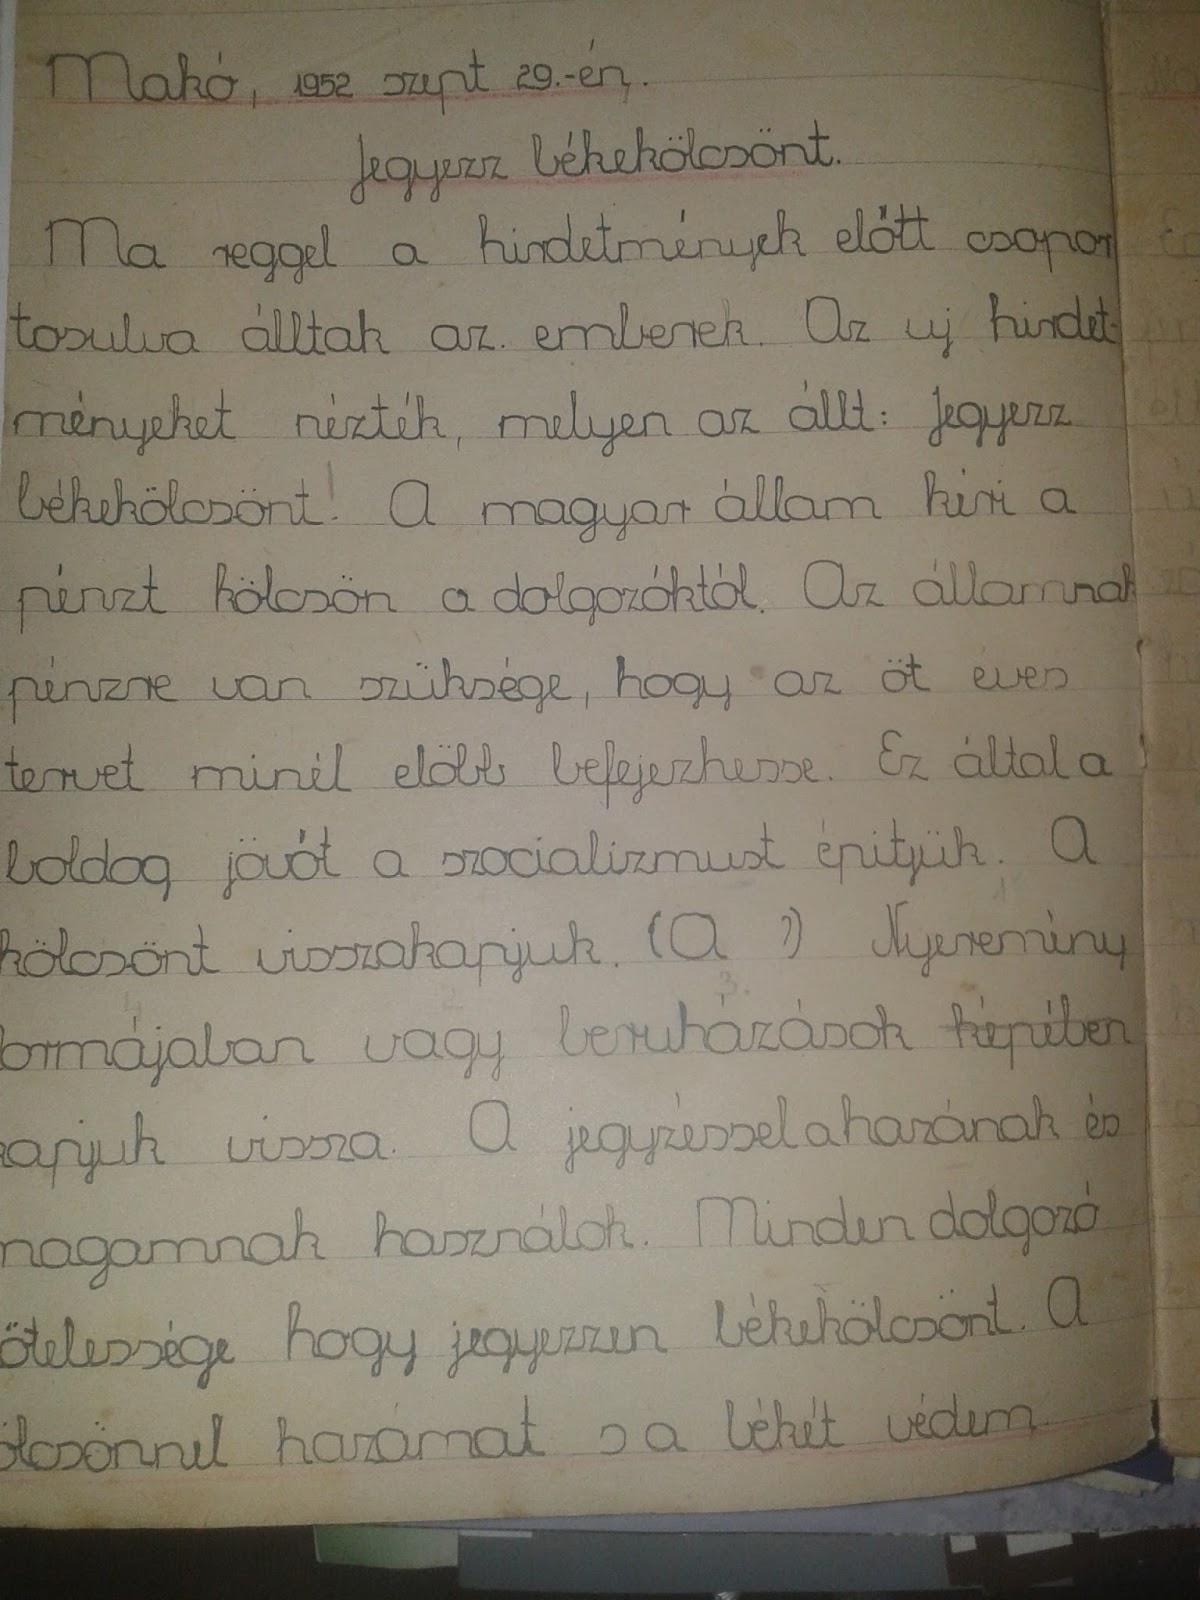 Makó, 1952 szept 29.-én.
Jegyezz békekölcsönt.
Ma reggel a hirdetmények előtt csopor
tosulva álltak az. emberek. Az uj hirdet-
ményeket nézték, melyen az állt: Jegyezz
békekölcsönt! A magyar állam kéri a
pénzt kölcsön a dolgozóktól. Az államnak
pénzre van szüksége, hogy az öt éves
tervet minél előbb befejezhesse. Ez által a
boldog jövőt a szocializmust épitjük. A
kölcsönt visszakapjuk. (A ) Nyeremény
ormájaban vagy beruházások képében
kapjuk vissza. A jegyzéssel a hazának és
magamnak használok. Minden dolgozó
ötelessége hogy jegyezzen békekölcsönt. A
ölcsönnel hazámat s a békét védem.